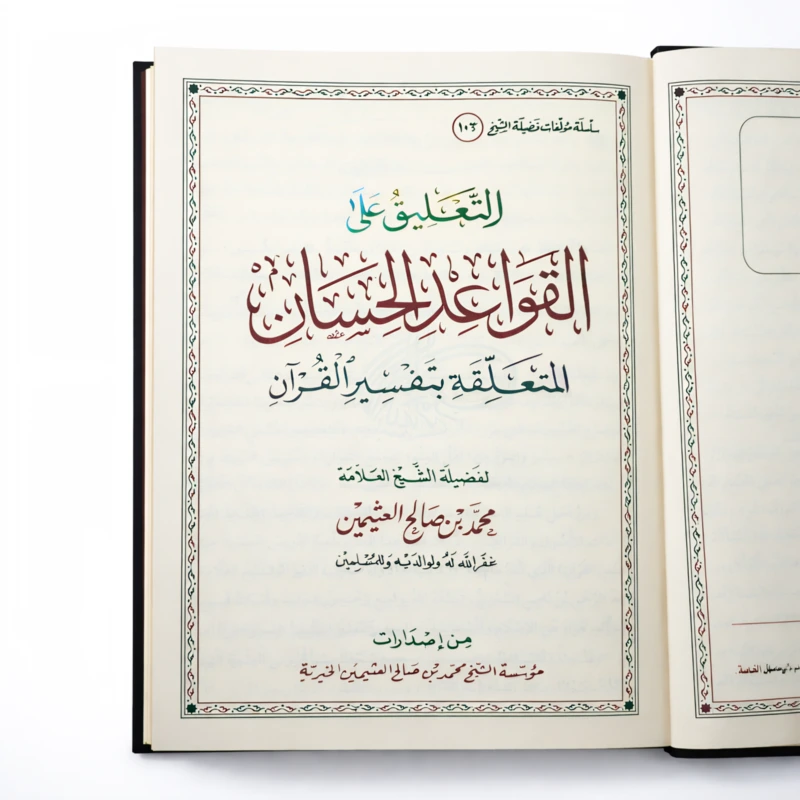 سلسلة مؤلفات فضيلة الشيخ ١٠٣
التَّعليقُ عَلَى
القَوَاعِدِ الحِسَانِ
المتعَلِّقَةِ بتَفْسِيرِ القُرْآنِ
لفَضيلَة الشَّيْخ العَلَامَة
محمَّد بْن صَالح العثيمين
غفَر اللَّه لَهُ ولوالدَيْه وَللمُسْلِمين
مِن إصْدَارات
مؤسّسة الشيخ محمّد بْن صَالح العثيمين الخيريّة
الخاصة